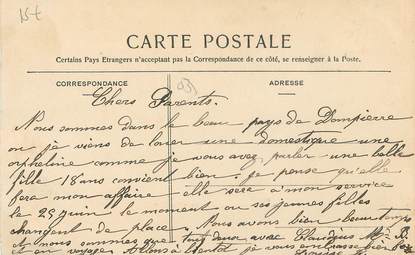 15 t
CARTE POSTALE
Certains Pays Etrangers n'acceptant pas la Correspondance de ce côté, se renseigner à la Poste.
CORRESPONDANCE
ADRESSE
Chers Parents.
Nous sommes dans le beau pays de Dompierre
ou je viens de louer une domestique une
orpheline comme je vous avez parler une belle
fille 18 ans convient bien. je pense qu'elle
fera mon affaire elle sera a mon service
le 25 juin le moment ou ses jeunes filles
changent de place. Nous avons bien beau temps
et nous sommes que tout deux avec Claudius
et en voyage Allons a bientot je vous embrasse bien